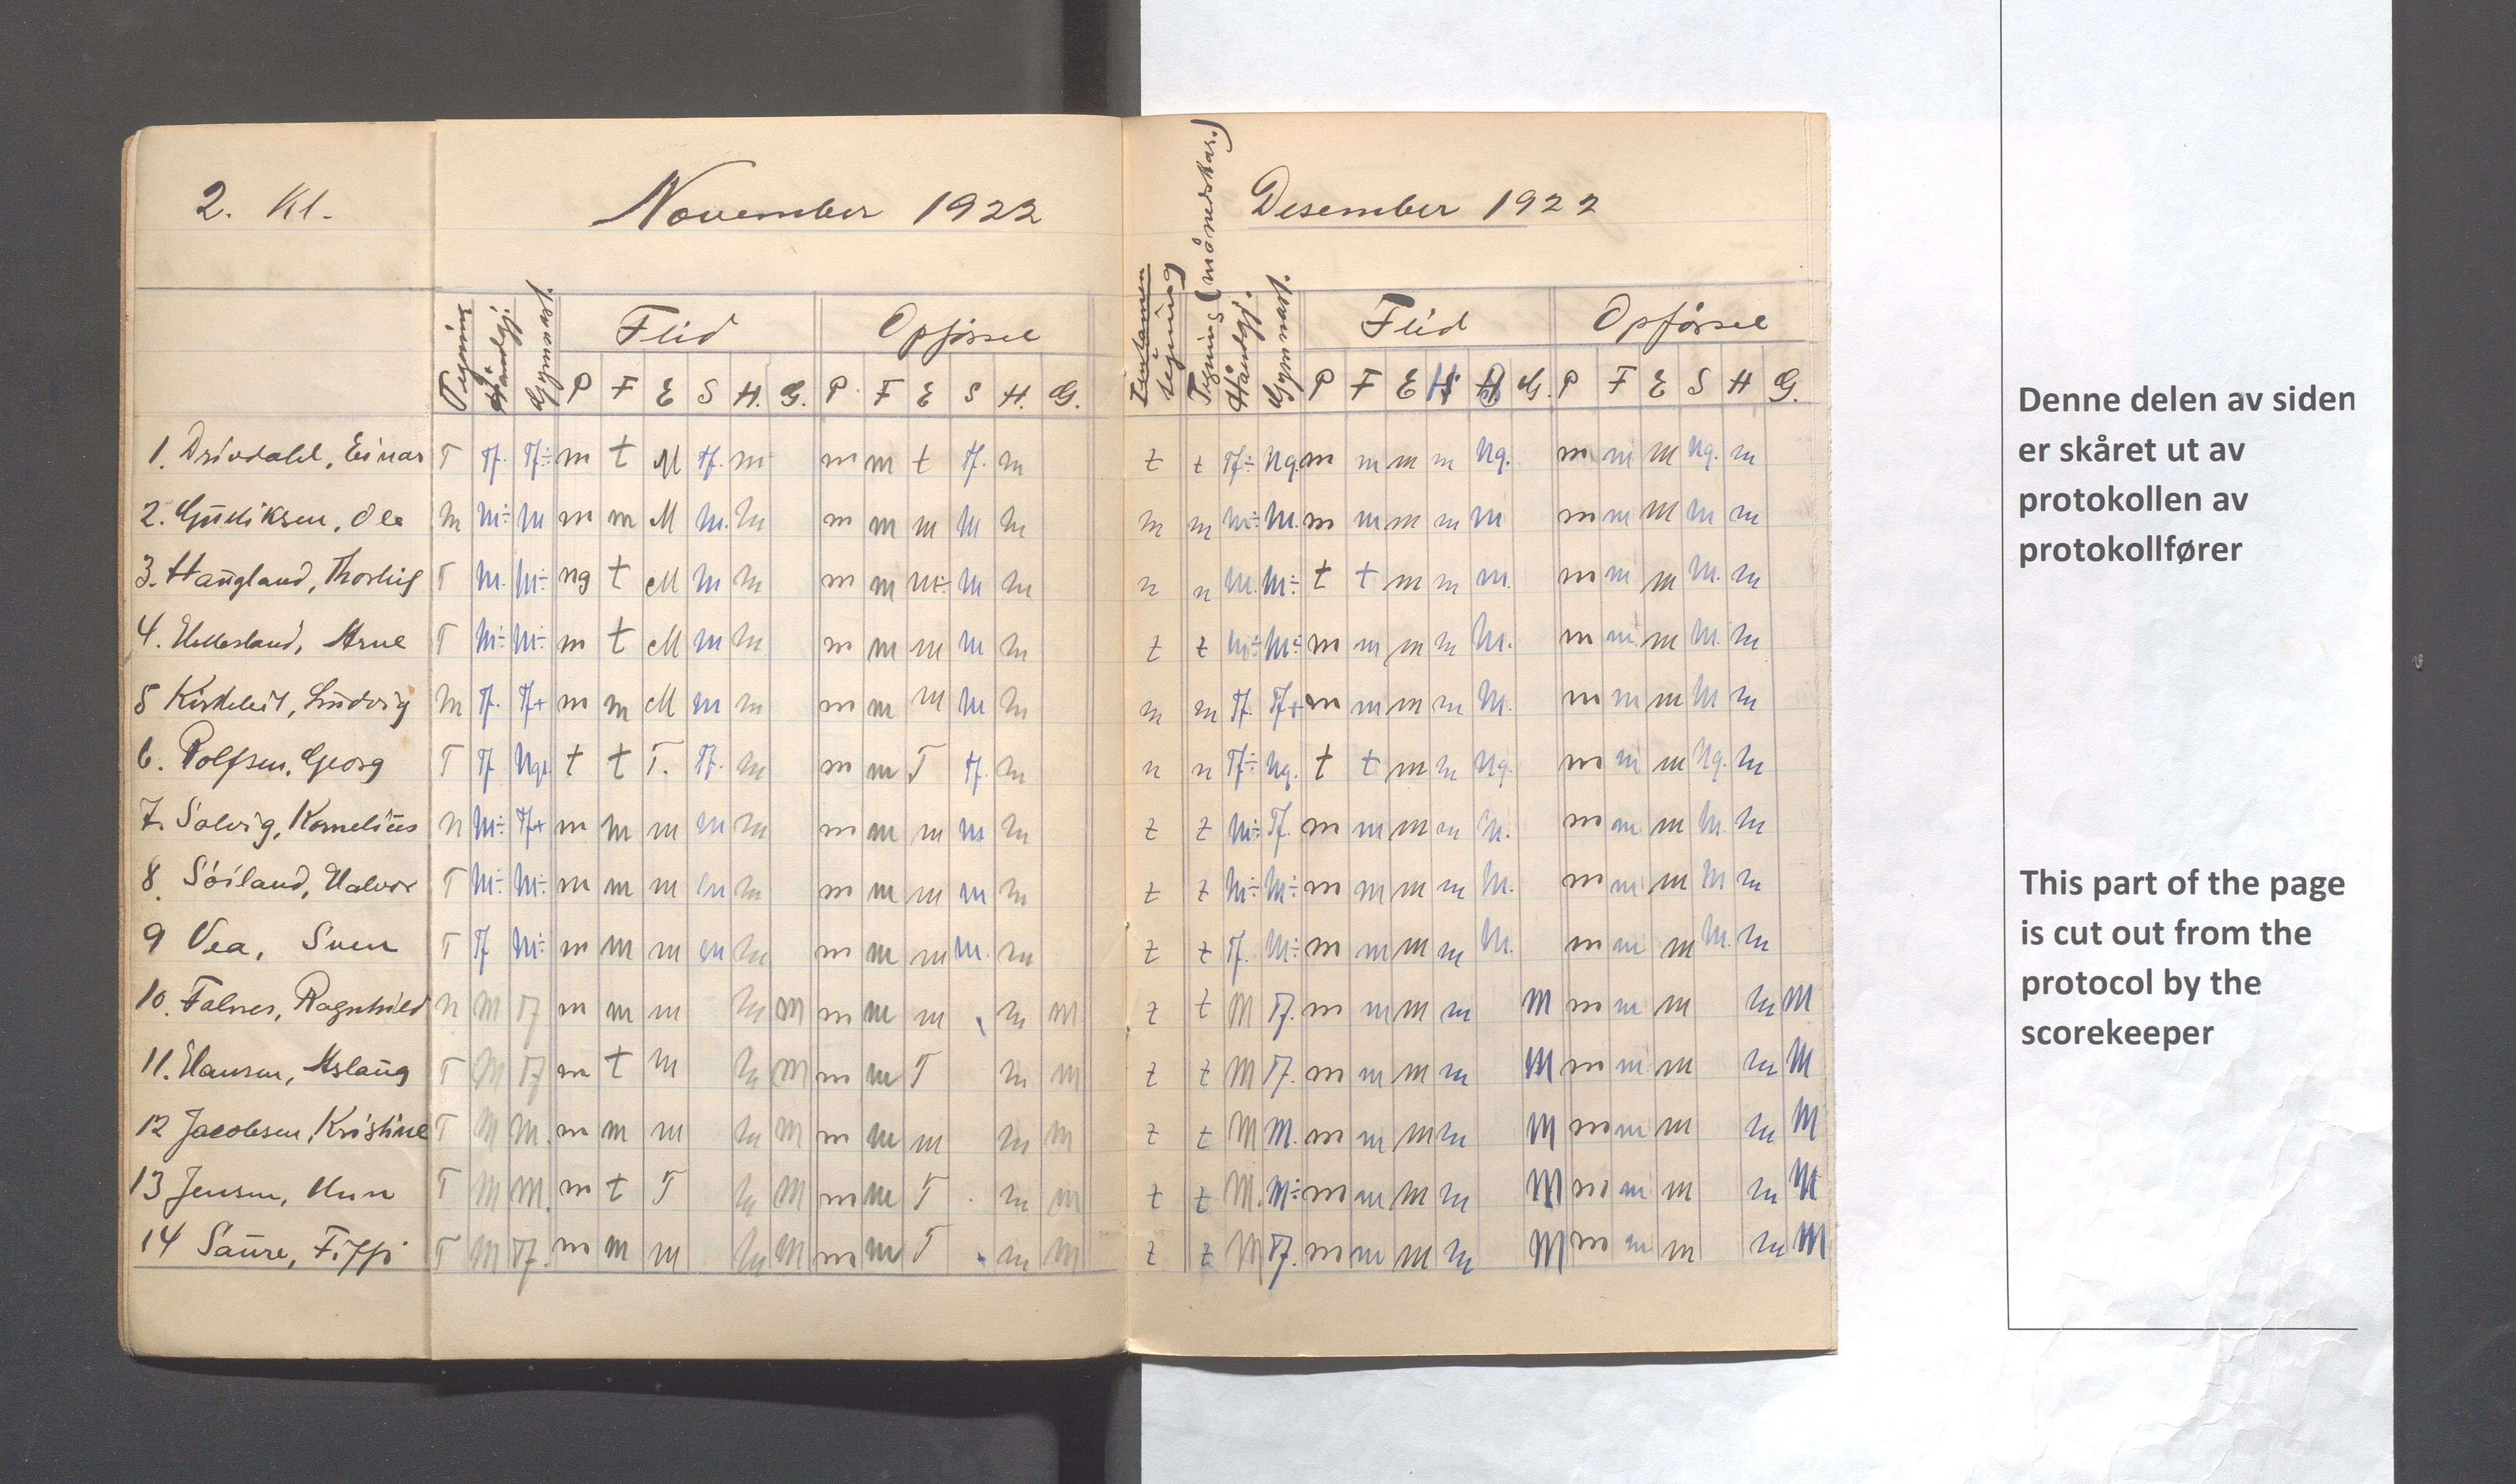 2. Kl.
November 1922
Desember 1922
Tegning Håndgj. Gymnast. Flid Opførsel
P F E S H. G. P. F E S H. G.
Tentamen tegning Tegning (månedskar.) Håndgj. Gymnast. Flid Opførsel
P F E H G. P F E S H G.
1. Drivdahl, Einar T Tf. Tf÷ m t M Tf. m m m t Tf. m t t Tf÷ Ng. m m m m Ng. m m m Ng. m
2. Gudiksen, Ole m m÷ m m m M m. m m m m m m m m m÷ m. m m m m m m m m m m
3. Haugland, Thorleif T m. m÷ ng t M m m m m m÷ m m n n m. m÷ t t m m m. m m m m. m
4. Hettesland, Arne T m÷ m÷ m t M m m m m m m m t t m÷ m÷ m m m m m. m m m m. m
5 Kirkeleit, Ludvig m Tf. Tf+ m m M m m m m m m m m m Tf. Tf+ m m m m m. m m m m m
6. Rolfsen, Georg T Tf Ng. t t T. Tf. m m m T Tf. m n n Tf÷ Ng. t t m m Ng. m m m Ng. m
7. Solvig, Kornelius n m÷ Tf+ m m m m m m m m m m t t m÷ Tf. m m m m m. m m m m. m
8. Søiland, Halvor T m÷ m÷ m m m m m m m m m m t t m÷ m÷ m m m m m. m m m m m
9 Vea, Sven T Tf m÷ m m m m m m m m m. m t t Tf. m÷ m m m m m. m m m m. m
10. Falnes, Ragnhild n M Tf m m m m M m m m m M t t M Tf. m m m m M m m m m M
11. Hansen, Aslaug T M Tf m t m m M m m T m M t t M Tf. m m m m M m m m m M
12 Jacobsen, Kristine T M M. m m m m M m m m m M t t M M. m m m m M m m m m M
13 Jensen, Unn T M M. m t T m M m m T m M t t M. M÷ m m m m M m m m m M
14 Saure, Fiffi T M Tf. m m m m M m m T m M t t M Tf. m m m m M m m m m M
Denne delen av siden
er skåret ut av
protokollen av
protokollfører
This part of the page
is cut out from the
protocol by the
scorekeeper